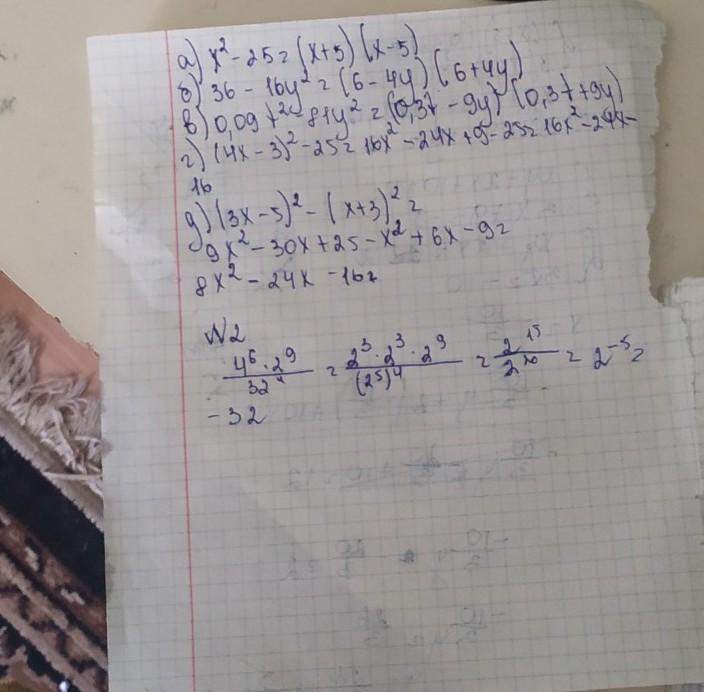 а) x² - 25 = (x+5) (x-5)
б) 36 - 16y² = (6-4y) (6+4y)
в) 0,09t² - 81y² = (0,3t - 9y) (0,3t+9y)
г) (4x-3)² - 25 = 16x² - 24x + 9 - 25 = 16x² - 24x -
16
д) (3x-5)² - (x+3)² =
9x² - 30x + 25 - x² + 6x - 9 =
8x² - 24x - 16 =
N2
4⁶ · 2⁹ / 32⁴ = 2³ · 2³ · 2⁹ / (2⁵)⁴ = 2¹⁵ / 2²⁰ = 2⁻⁵ =
- 32